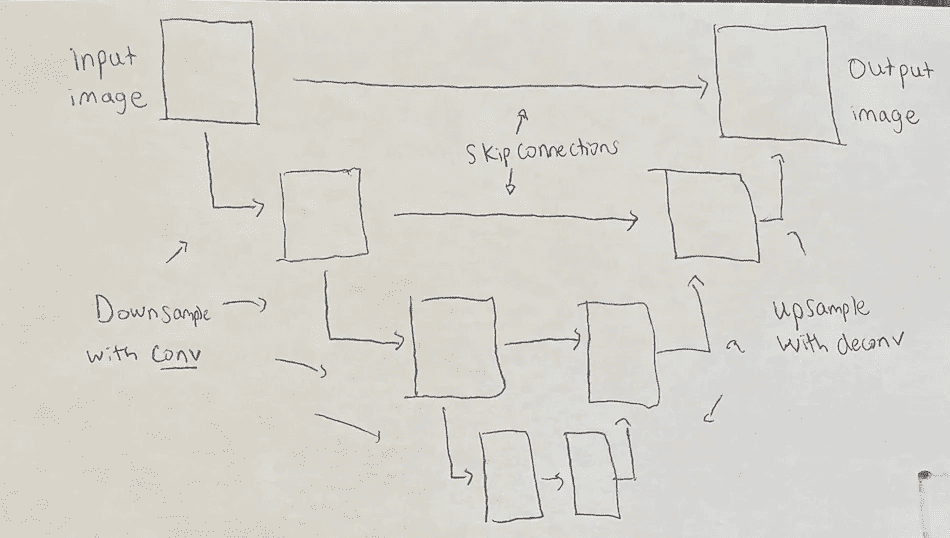 input
image
Output
image
Skip connections
Downsample
with conv
upsample
with deconv